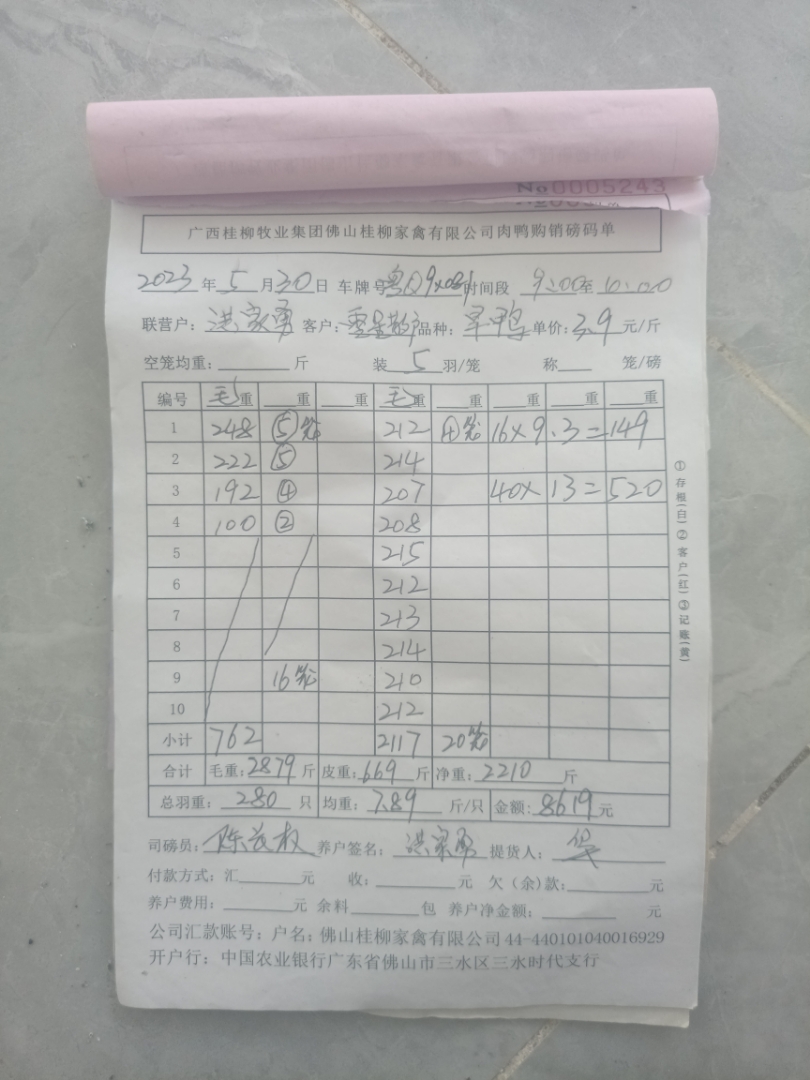 No 0005243
广西桂柳牧业集团佛山桂柳家禽有限公司肉鸭购销磅码单
2023年5月30日 车牌号 粤Q9 时间段 9:00至10:00
联营户: 洪家勇 客户: 零星散户 品种: 旱鸭 单价: 3.9元/斤
空笼均重: 斤 装5羽/笼 称 笼/磅
编号 毛重 重 重 毛重 重 重 重 重
1 248 ⑤笼 212 ④笼 16×9.3=149
2 222 ⑤ 214
3 192 ④ 207 40×13=520
4 100 ② 208
5 215
6 212
7 213
8 214
9 16笼 210
10 212
小计 762 2117 20笼
合计 毛重:2879斤 皮重:669斤 净重:2210斤
总羽重: 280只 均重: 7.89斤/只 金额:8619元
司磅员: 陈 养户签名: 洪家勇 提货人:
付款方式: 汇 元 收: 元 欠(余)款: 元
养户费用: 元 余料 包 养户净金额: 元
公司汇款账号: 户名: 佛山桂柳家禽有限公司44-440101040016929
开户行: 中国农业银行广东省佛山市三水区三水时代支行
①存根(白)②客户(红)③记账(黄)